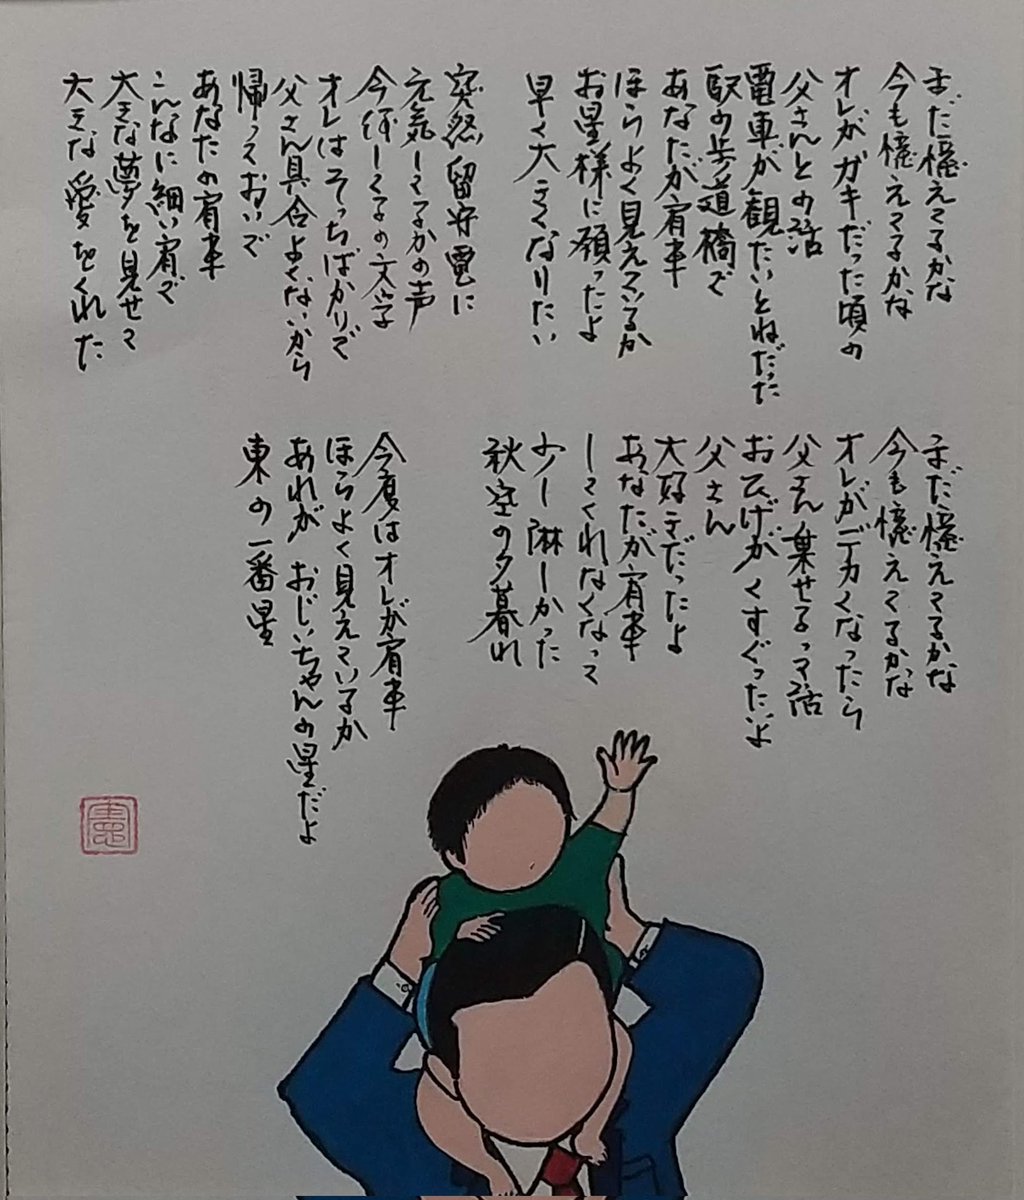 まだ憶えてるかな
今も憶えてるかな
オレがガキだった頃の
父さんとの話
電車が観たいとねだった
駅の歩道橋で
あなたが肩車
ほらよく見えているか
お星様に願ったよ
早く大きくなりたい
突然留守電に
元気してるかの声
今何してるの文字
オレはそっちばかりで
父さん具合よくないから
帰っておいで
あなたの肩車
こんなに細い肩で
大きな夢を見せて
大きな愛をくれた
まだ憶えてるかな
今も憶えてるかな
オレがデカくなったら
父さん乗せるって話
おひげがくすぐったいよ
父さん
大好きだったよ
あなたが肩車
してくれなくなって
少し淋しかった
秋空の夕暮れ
今度はオレが肩車
ほらよく見えているか
あれが おじいちゃんの星だよ
東の一番星
憲